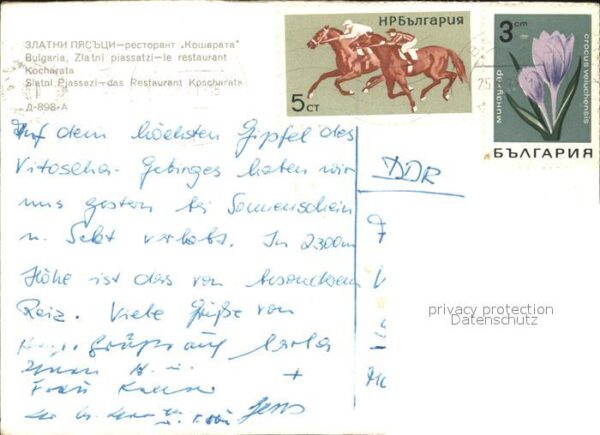 ЗЛАТНИ ПЯСЪЦИ—ресторант „Кошарата"
Bulgaria, Zlatni piassatzi—le restaurant
Kocharata
Slatni Piassazi—das Restaurant Koscharata
Д-898-А
НРБЪЛГАРИЯ
5 СТ
3 cm
минзухар
crocus veluchensis
БЪЛГАРИЯ
25
Auf dem höchsten Gipfel des
Vitoscha-Gebirges haben wir
uns gestern bei Sonnenschein
u. Sekt verlobt. In 2300m
Höhe ist das von besonderem
Reiz. Viele Grüße von
Carla
+
Frau
Jens
DDR
privacy protection
Datenschutz